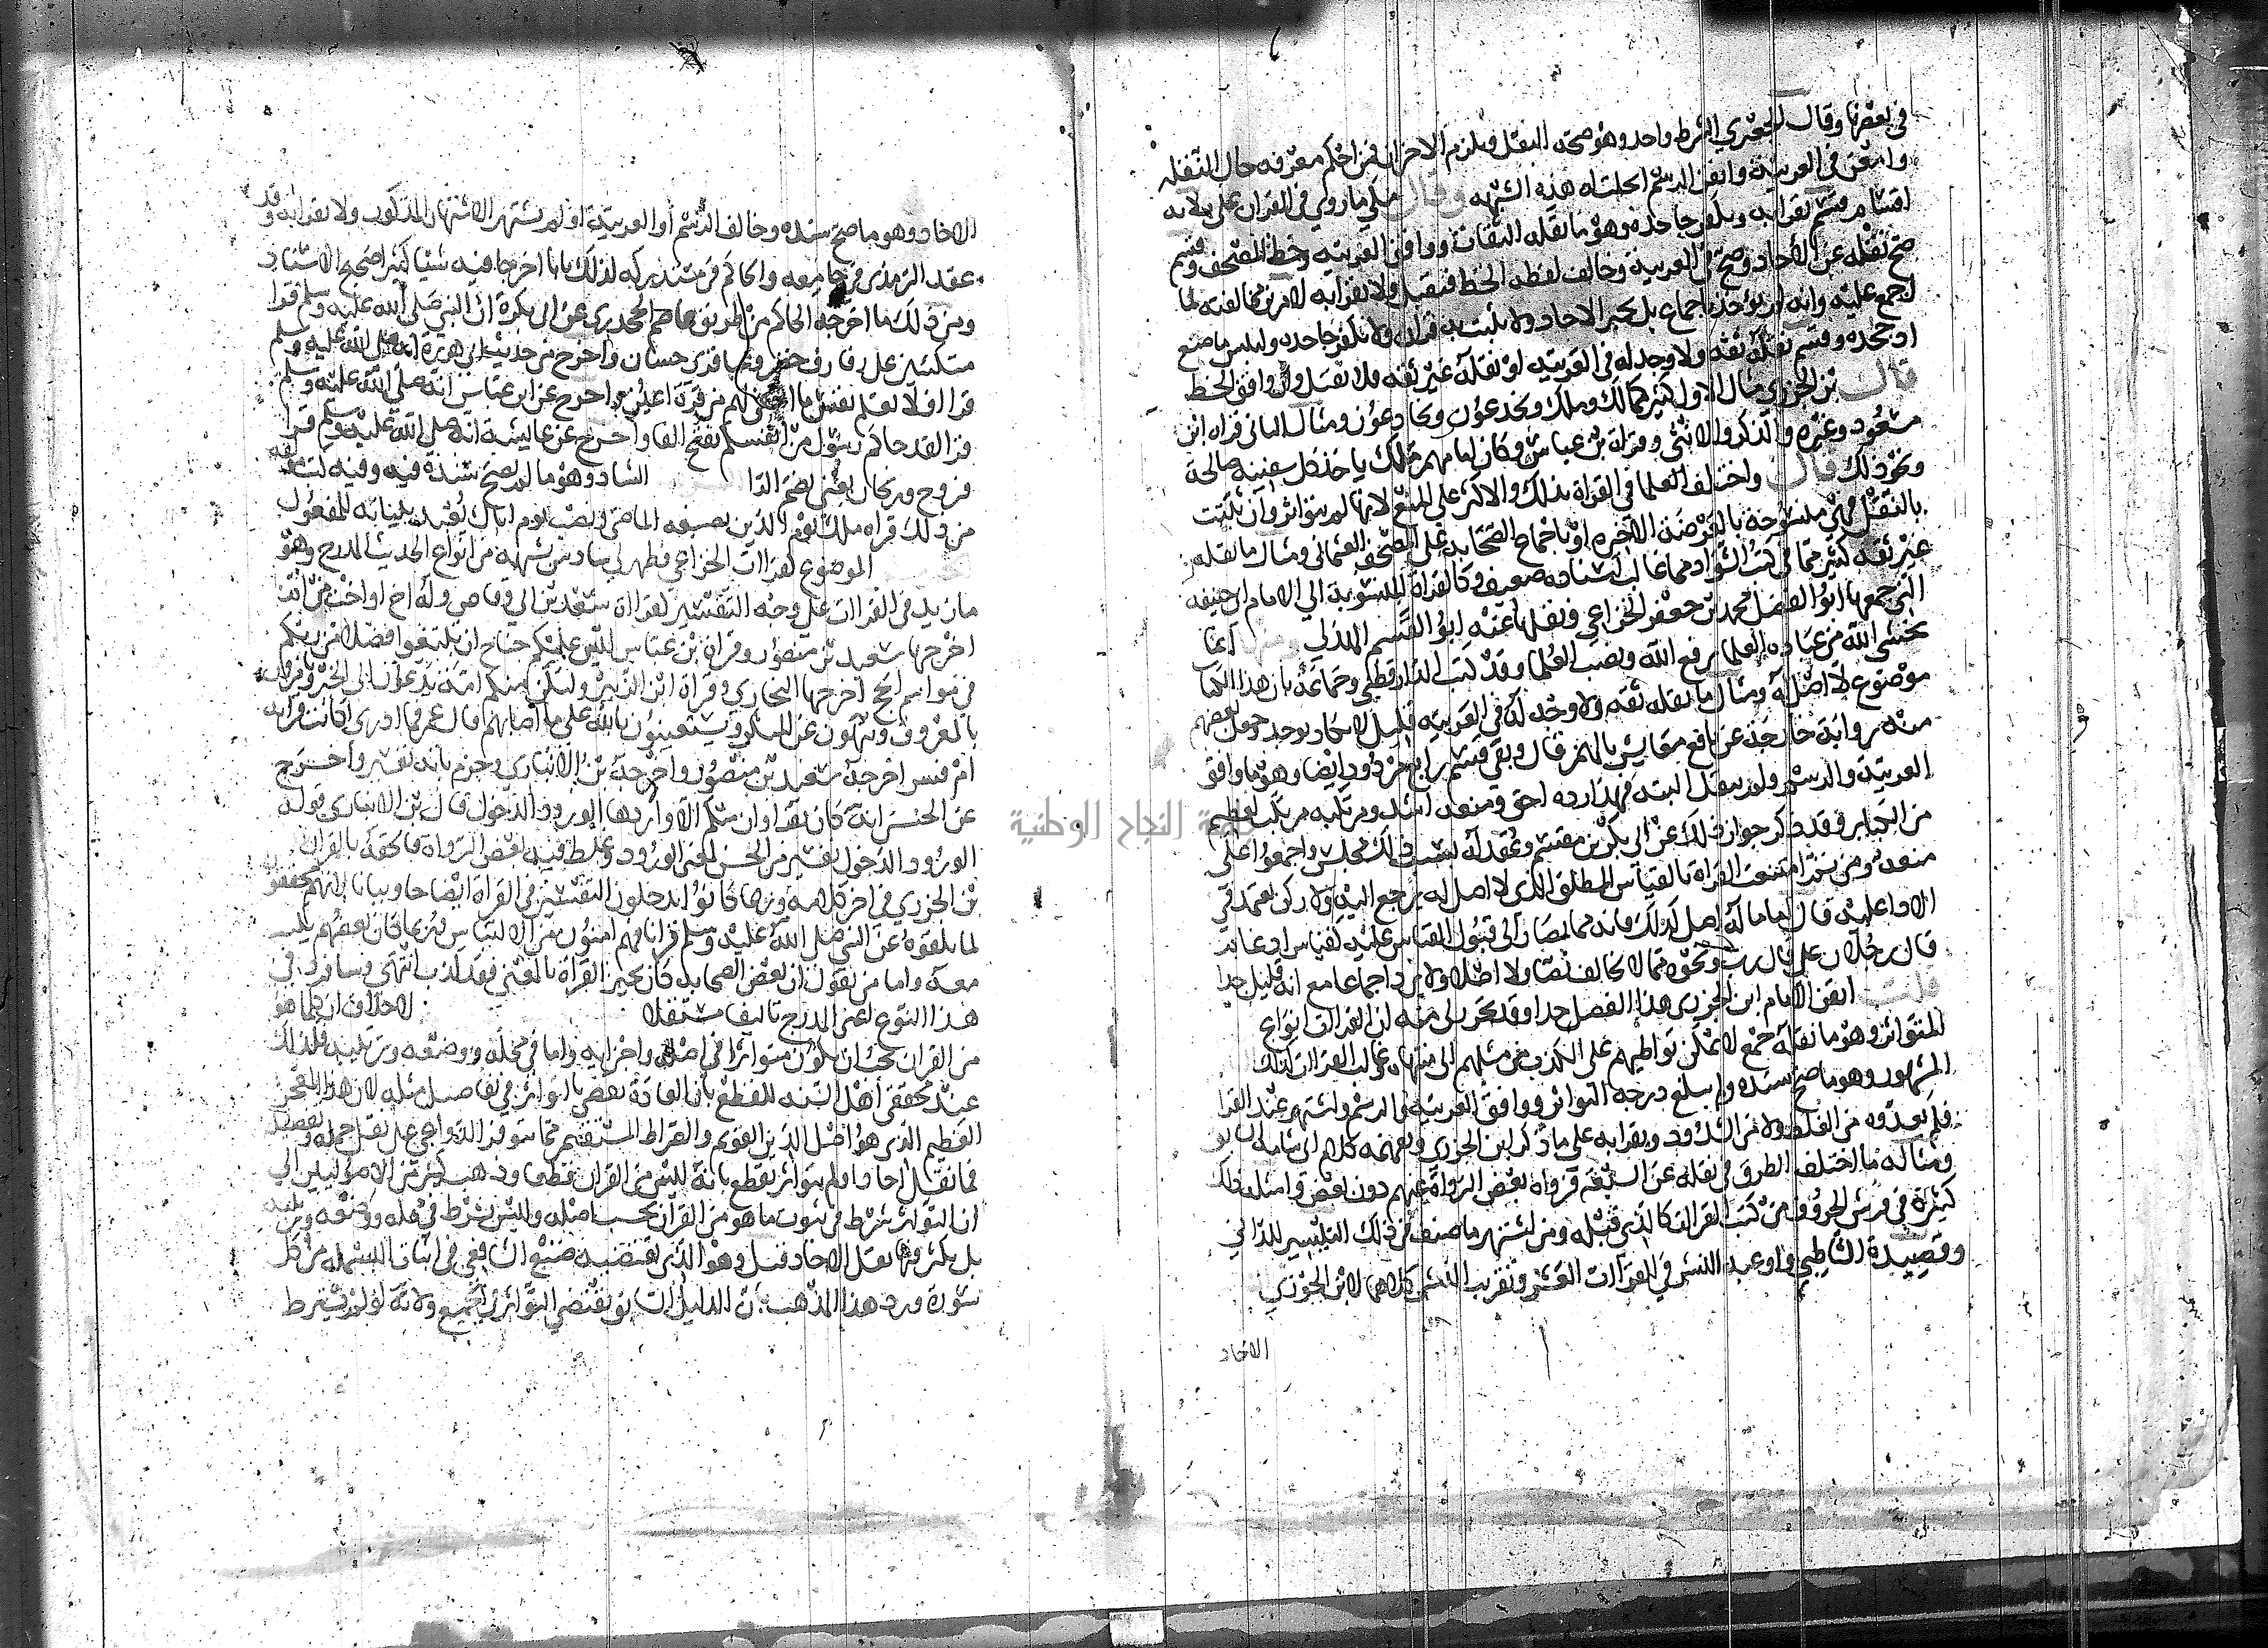 في بعضها وقال الجعبري الشرط واحد وهو صحة النقل ويلزم الاخران فمن احكم معرفة حال النقلة
وامعن في العربية واتقن الرسم انحلت له هذه الشبهة وقال مكي ما روي في القران على ثلاثة
اقسام قسم يقرا به ويكفر جاحده وهو ما نقله الثقات ووافق العربية وخط المصحف وقسم
صح نقله عن الاحاد وصح في العربية وخالف لفظه الخط فيقبل ولا يقرا به لامرين مخالفته لما
اجمع عليه وانه لم يؤخذ باجماع بل بخبر الاحاد ولا يثبت به قران ولا يكفر جاحده ولبئس ما صنع
اذ جحده وقسم نقله ثقة ولا وجه له في العربية او نقله غير ثقة فلا يقبل وان وافق الخط
قال بن الجزري مثال الاول كثير كمالك وملك ويخدعون ويخادعون ومثال الثاني قراة ابن
مسعود وغيره والذكر والانثى وقراة بن عباس وكان امامهم ملك ياخذ كل سفينة صالحة
ونحو ذلك قال واختلف العلما في القراة بذلك والاكثر على المنع لانها لم تتواتر وان ثبتت
بالنقل فهي منسوخة بالعرضة الاخيرة او باجماع الصحابة على المصحف العثماني ومثال ما نقله
غير ثقة كثير مما في كتب الشواذ مما غالب اسناده ضعيف وكالقراة المنسوبة الى الامام ابي حنيفة
التي جمعها ابو الفضل محمد بن جعفر الخزاعي ونقلها عنه ابو القسم الهذلي ومنها انما
يخشى الله من عباده العلما برفع الله ونصب العلما وقد كتب الدارقطني وجماعة بان هذا الكتاب
موضوع لا اصل له ومثال ما نقله ثقة ولا وجه له في العربية قليل لا يكاد يوجد وجعل بعضهم
منه رواية خارجة عن نافع معايش بالهمز قال وبقي قسم رابع مردود ايضا وهو ما وافق
العربية والرسم ولم ينقل البتة فهذا رده احق ومنعه اشد ومرتكبه مرتكب لعظيم
من الكبائر وقد ذكر جواز ذلك عن ابي بكر بن مقسم وعقد له بسبب ذلك مجلس واجمعوا على
منعه ومن ثم امتنعت القراة بالقياس المطلق الذي لا اصل له يرجع اليه ولا ركن يعتمد في
الادا عليه قال اما ما له اصل كذلك فانه مما يصار الى قبول القياس عليه كقياس ادغام
قال رجلان على قال رب ونحوه مما لا يخالف نصا ولا اصلا ولا يرد اجماعا مع انه قليل جدا
قلت اتقن الامام ابن الجزري هذا الفصل جدا وقد تحرر لي منه ان القراات انواع
المتواتر وهو ما نقله جمع لا يمكن تواطيهم على الكذب عن مثلهم الى منتهاه وغالب القراات كذلك
المشهور وهو ما صح سنده ولم يبلغ درجة التواتر ووافق العربية والرسم واشتهر عند القرا
فلم يعدوه من الغلط ولا من الشذوذ ويقرا به على ما ذكر ابن الجزري ويفهمه كلام ابي شامة
ومثاله ما اختلف الطرق في نقله عن السبعة فرواه بعض الرواة عنهم دون بعض وامثلة ذلك
كثيرة في فرش الحروف من كتب القراات كالذي قبله ومن اشهر ما صنف في ذلك التيسير للداني
وقصيدة الشاطبي واوعية النشر في القراات العشر وتقريب النشر كلاهما لابن الجزري
الاحاد
الاحاد وهو ما صح سنده وخالف الرسم او العربية او لم يشتهر الاشتهار المذكور ولا يقرا به وقد
عقد الترمذي في جامعه والحاكم في مستدركه لذلك بابا اخرجا فيه شيئا كثيرا صحيح الاسناد
ومن ذلك ما اخرجه الحاكم من طريق عاصم الجحدري عن ابي بكرة ان النبي صلى الله عليه وسلم قرا
متكئين على رفارف خضر وعباقري حسان واخرج من حديث ابي هريرة انه صلى الله عليه وسلم
قرا فلا تعلم نفس ما اخفي لهم من قرة اعين واخرج عن ابن عباس انه صلى الله عليه وسلم
قرا لقد جاكم رسول من انفسكم بفتح الفا واخرج عن عايشة انه صلى الله عليه وسلم قرا
فروح وريحان يعني بضم الرا الشاذ وهو ما لم يصح سنده وفيه كتب مولفة
من ذلك قراة ملك يوم الدين بصيغة الماضي ونصب يوم اياك يعبد ببنيانه للمفعول
الموضوع كقراات الخزاعي وظهر لي سادس يشبهه من انواع الحديث المدرج وهو
ما زيد في القراات على وجه التفسير كقراة سعد بن ابي وقاص وله اخ او اخت من ام
اخرجها سعيد بن منصور وقراة بن عباس ليس عليكم جناح ان تبتغوا فضلا من ربكم
في مواسم الحج اخرجها البخاري وقراة ابن الزبير ولتكن منكم امة يدعون الى الخير ويامرون
بالمعروف وينهون عن المنكر ويستعينون بالله على ما اصابهم قال عمر فما ادري اكانت قراته
ام فسر اخرجه سعيد بن منصور واخرجه بن الانباري وجزم بانه تفسير واخرج
عن الحسن انه كان يقرا وان منكم الا واردها الورود الدخول قال بن الانباري قوله
الورود الدخول تفسير من الحسن لمعنى الورود وغلط فيه بعض الرواة فالحقه بالقران
بن الجزري في اخر كلامه وربما كانوا يدخلون التفسير في القراة ايضاحا وبيانا لانهم محققون
لما تلقوه عن النبي صلى الله عليه وسلم قرانا فهم امنون من الالتباس وربما كان بعضهم يكتبه
معه واما من يقول ان بعض الصحابة كان يجيز القراة بالمعنى فقد كذب انتهى وسافرد في
هذا النوع اعني المدرج تاليفا مستقلا لا خلاف ان كلما هو
من القران يجب ان يكون متواترا في اصله واجزايه واما في محله ووضعه وترتيبه فكذلك
عند محققي اهل السنة للقطع بان العادة تقضي بالتواتر في تفاصيل مثله لان هذا المعجز
العظيم الذي هو اصل الدين القويم والصراط المستقيم مما تتوفر الدواعي على نقل جمله وتفصيله
فما نقل احادا ولم يتواتر يقطع بانه ليس من القران قطعا وذهب كثير من الاصوليين الى
ان التواتر شرط في ثبوت ما هو من القران بحسب اصله وليس بشرط في محله ووضعه وترتيبه
بل يكثر فيها نقل الاحاد قيل وهو الذي يقتضيه صنيع الشافعي في اثبات البسملة من كل
سورة ورد هذا المذهب بان الدليل السابق يقتضي التواتر في الجميع ولانه لو لم يشترط
جامعة النجاح الوطنية